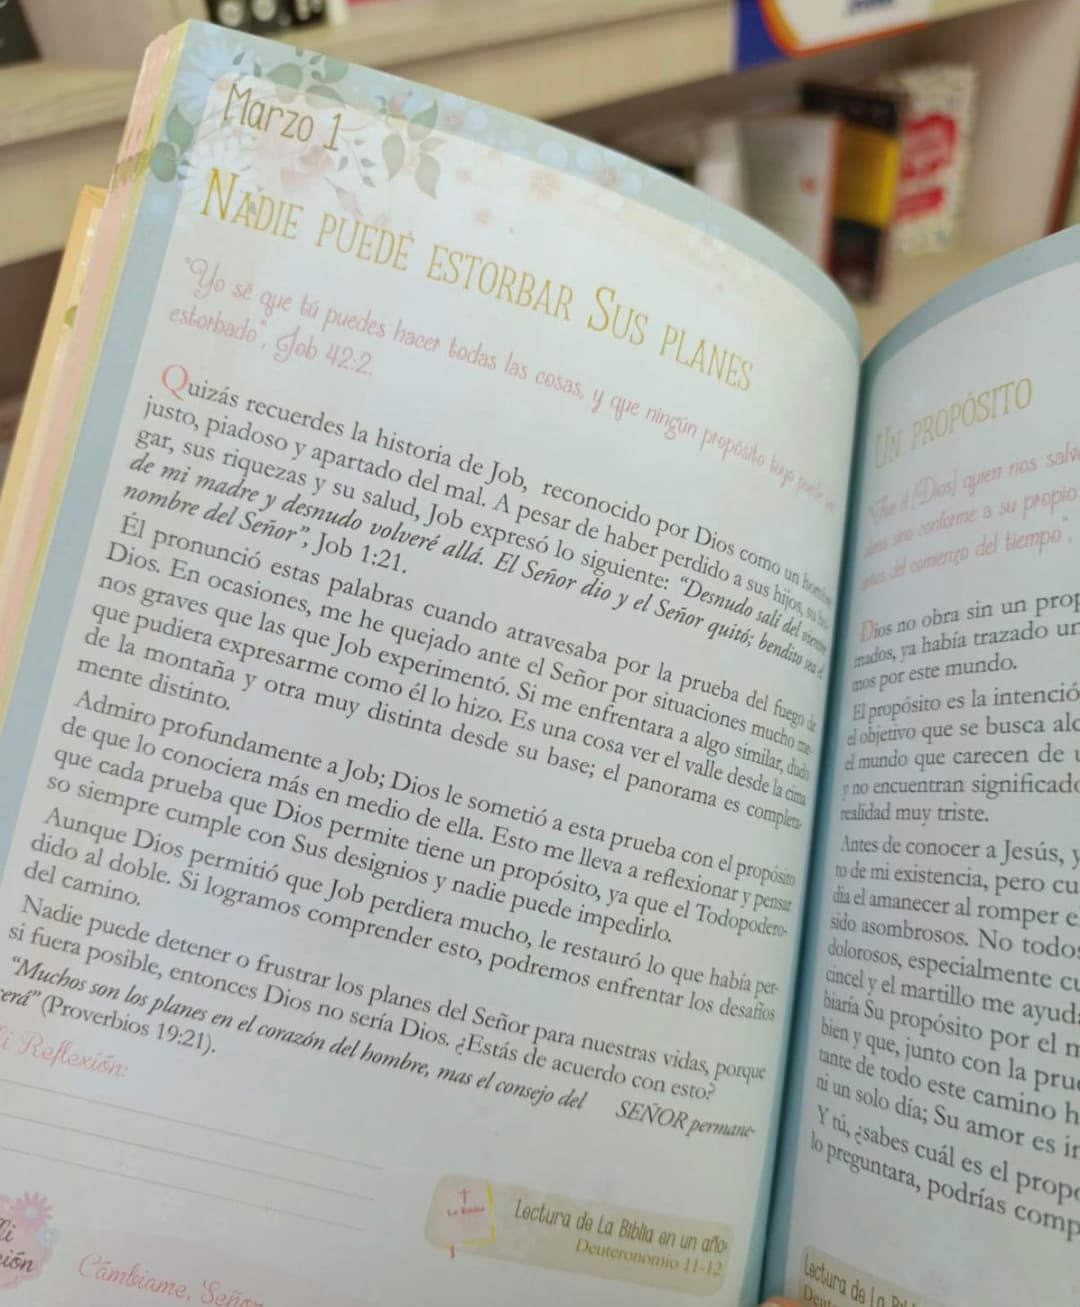 Marzo 1
Nadie puede estorbar Sus planes
"Yo sé que tú puedes hacer todas las cosas, y que ningún propósito tuyo puede ser
estorbado", Job 42:2.
Quizás recuerdes la historia de Job, reconocido por Dios como un hombre
justo, piadoso y apartado del mal. A pesar de haber perdido a sus hijos, su ho-
gar, sus riquezas y su salud, Job expresó lo siguiente: “Desnudo salí del vientre
de mi madre y desnudo volveré allá. El Señor dio y el Señor quitó; bendito sea el
nombre del Señor”, Job 1:21.
Él pronunció estas palabras cuando atravesaba por la prueba del fuego de
Dios. En ocasiones, me he quejado ante el Señor por situaciones mucho me-
nos graves que las que Job experimentó. Si me enfrentara a algo similar, dudo
que pudiera expresarme como él lo hizo. Es una cosa ver el valle desde la cima
de la montaña y otra muy distinta desde su base; el panorama es completa-
mente distinto.
Admiro profundamente a Job; Dios le sometió a esta prueba con el propósito
de que lo conociera más en medio de ella. Esto me lleva a reflexionar y pensar
que cada prueba que Dios permite tiene un propósito, ya que el Todopodero-
so siempre cumple con Sus designios y nadie puede impedirlo.
Aunque Dios permitió que Job perdiera mucho, le restauró lo que había per-
dido al doble. Si logramos comprender esto, podremos enfrentar los desafíos
del camino.
Nadie puede detener o frustrar los planes del Señor para nuestras vidas, porque
si fuera posible, entonces Dios no sería Dios. ¿Estás de acuerdo con esto?
“Muchos son los planes en el corazón del hombre, mas el consejo del SEÑOR permane-
cerá” (Proverbios 19:21).
Mi Reflexión:
Cámbiame, Señor
La Biblia
Lectura de La Biblia en un año:
Deuteronomio 11-12
Un propósito
[Dios] quien nos salv
conforme a su propio
antes del comienzo del tiempo",
Dios no obra sin un prop
mados, ya había trazado un
mos por este mundo.
El propósito es la intenció
el objetivo que se busca alc
el mundo que carecen de u
y no encuentran significado
realidad muy triste.
Antes de conocer a Jesús, y
to de mi existencia, pero cu
día el amanecer al romper e
sido asombrosos. No todos
dolorosos, especialmente cu
cincel y el martillo me ayuda
biaría Su propósito por el m
bien y que, junto con la prue
tante de todo este camino h
ni un solo día; Su amor es in
Y tú, ¿sabes cuál es el propó
lo preguntara, podrías comp
Lectura de La Bi
Deut